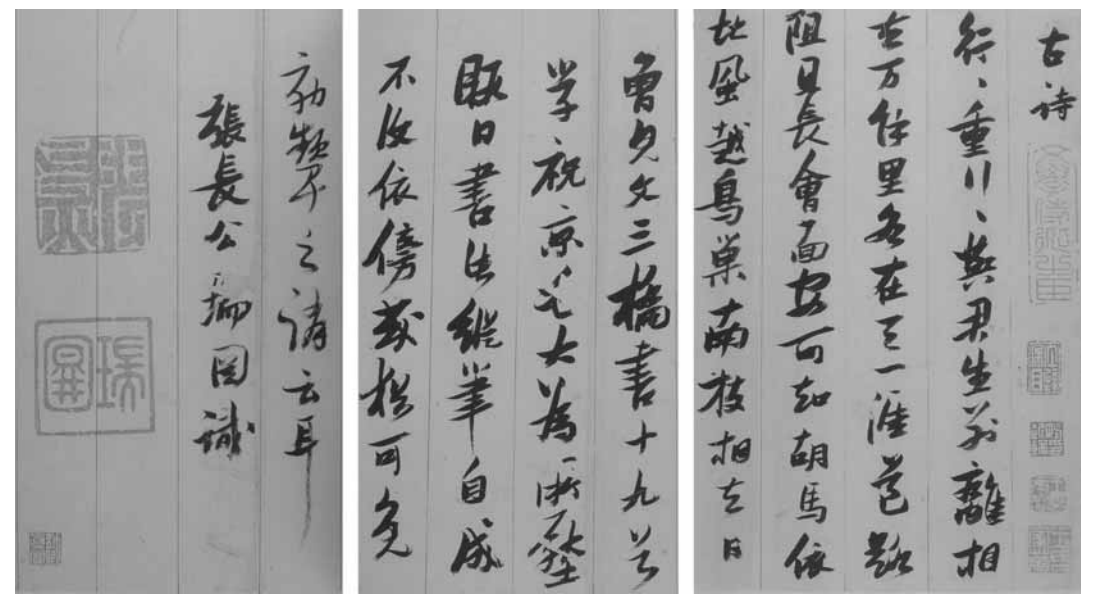 古詩
行〻重行〻與君生別離相
去万餘里各在天一涯道路
阻且長會面安可知胡馬依
北風越鳥巢南枝相去日
曾見文三橋書十九首
學祝京兆大為所壓
暇日書縱筆自成
不依傍或於可免
効顰之誚云耳
張長公瑞圖識
瑞圖